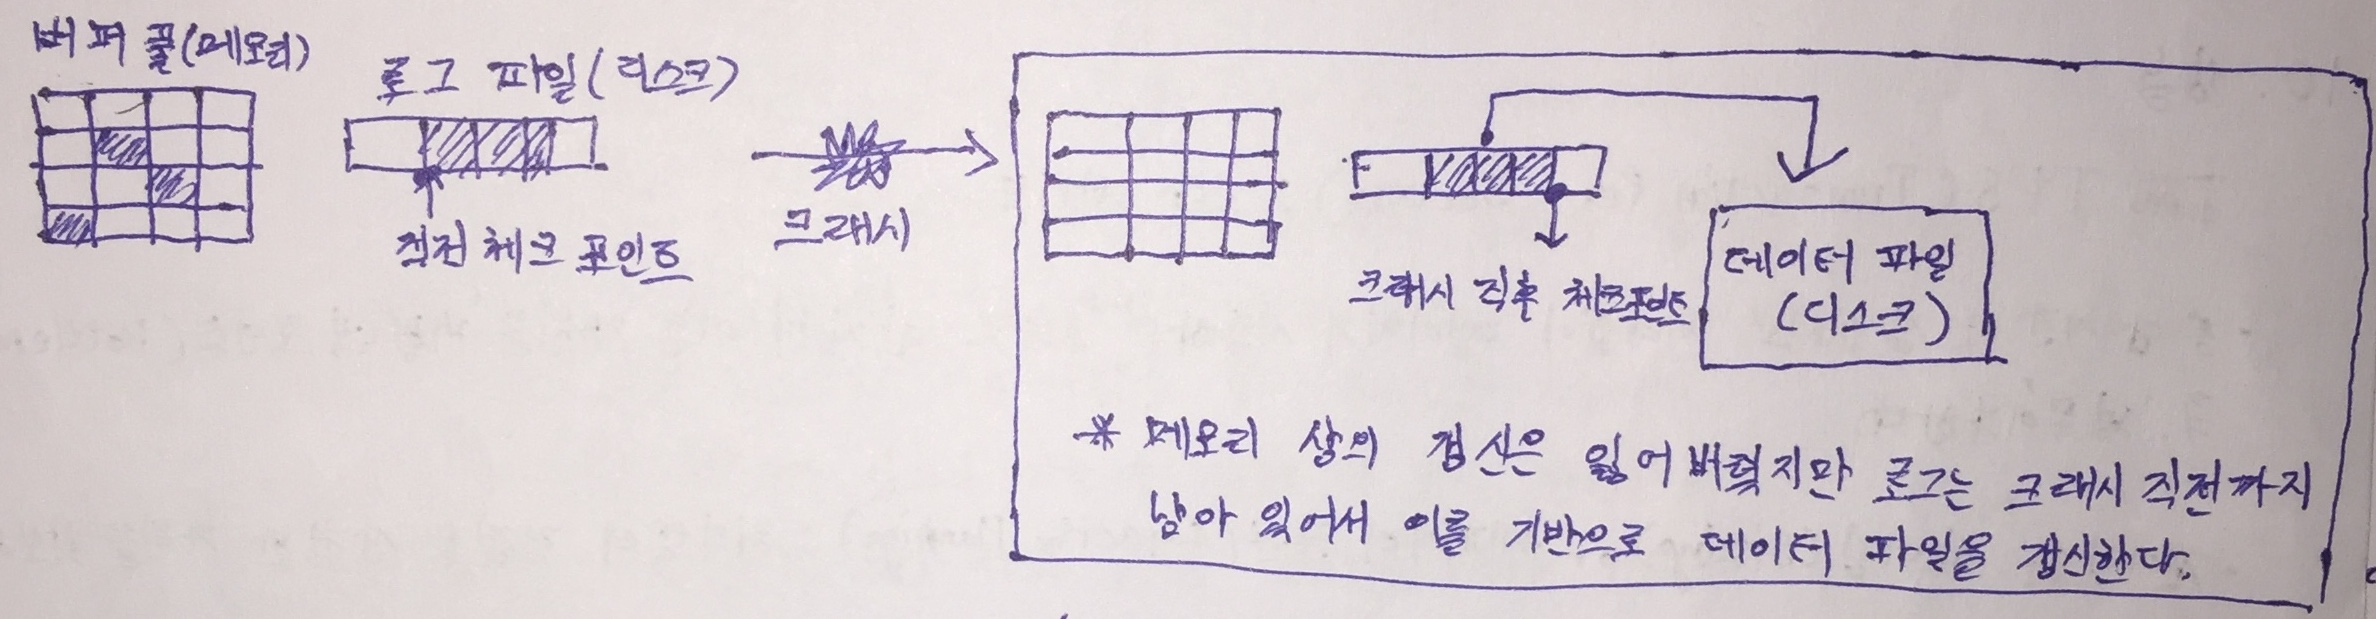 버퍼 풀(메모리)
로그 파일(디스크)
직전 체크 포인트
크래시
크래시 직후 체크포인트
데이터 파일
(디스크)
* 메모리 상의 갱신은 잃어버렸지만 로그는 크래시 직전까지
남아 있어서 이를 기반으로 데이터 파일을 갱신한다.